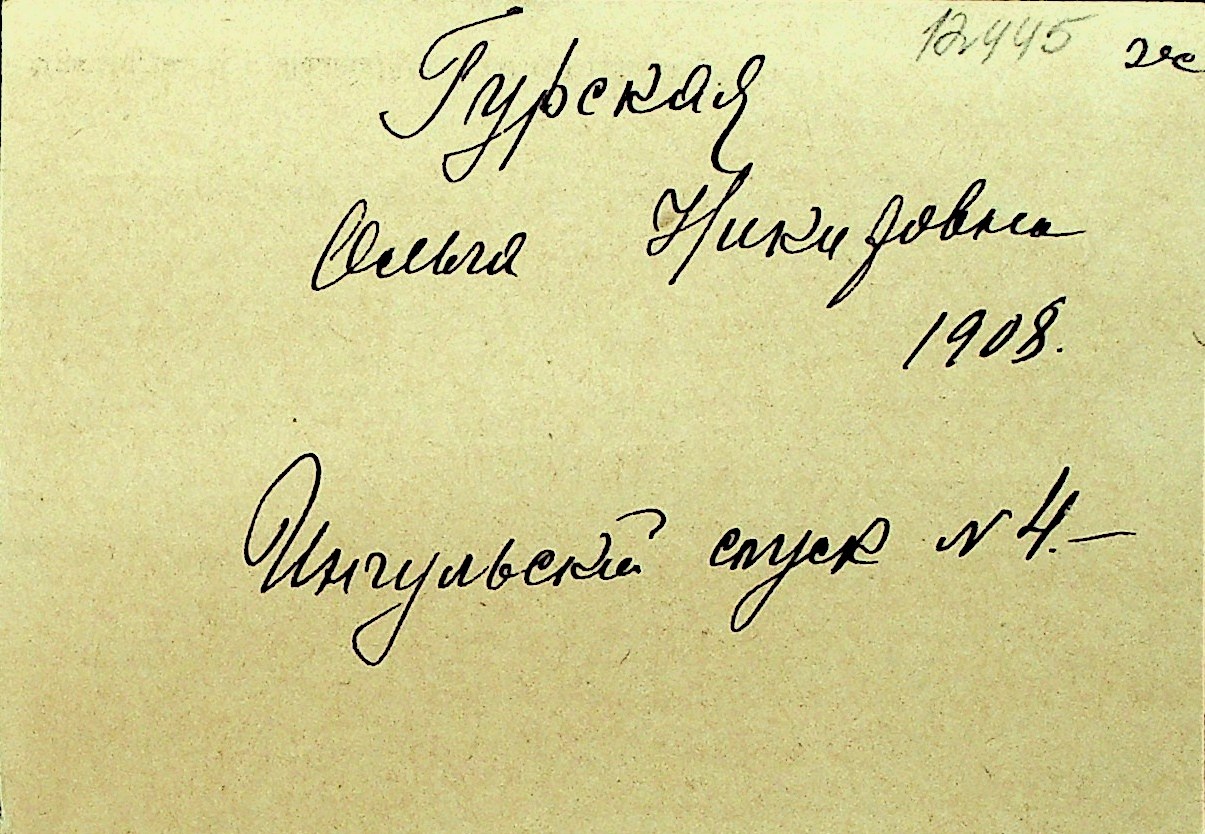 12445
Гурская
Ольга Никифовна
1908.
Ингульский спуск N 4.—